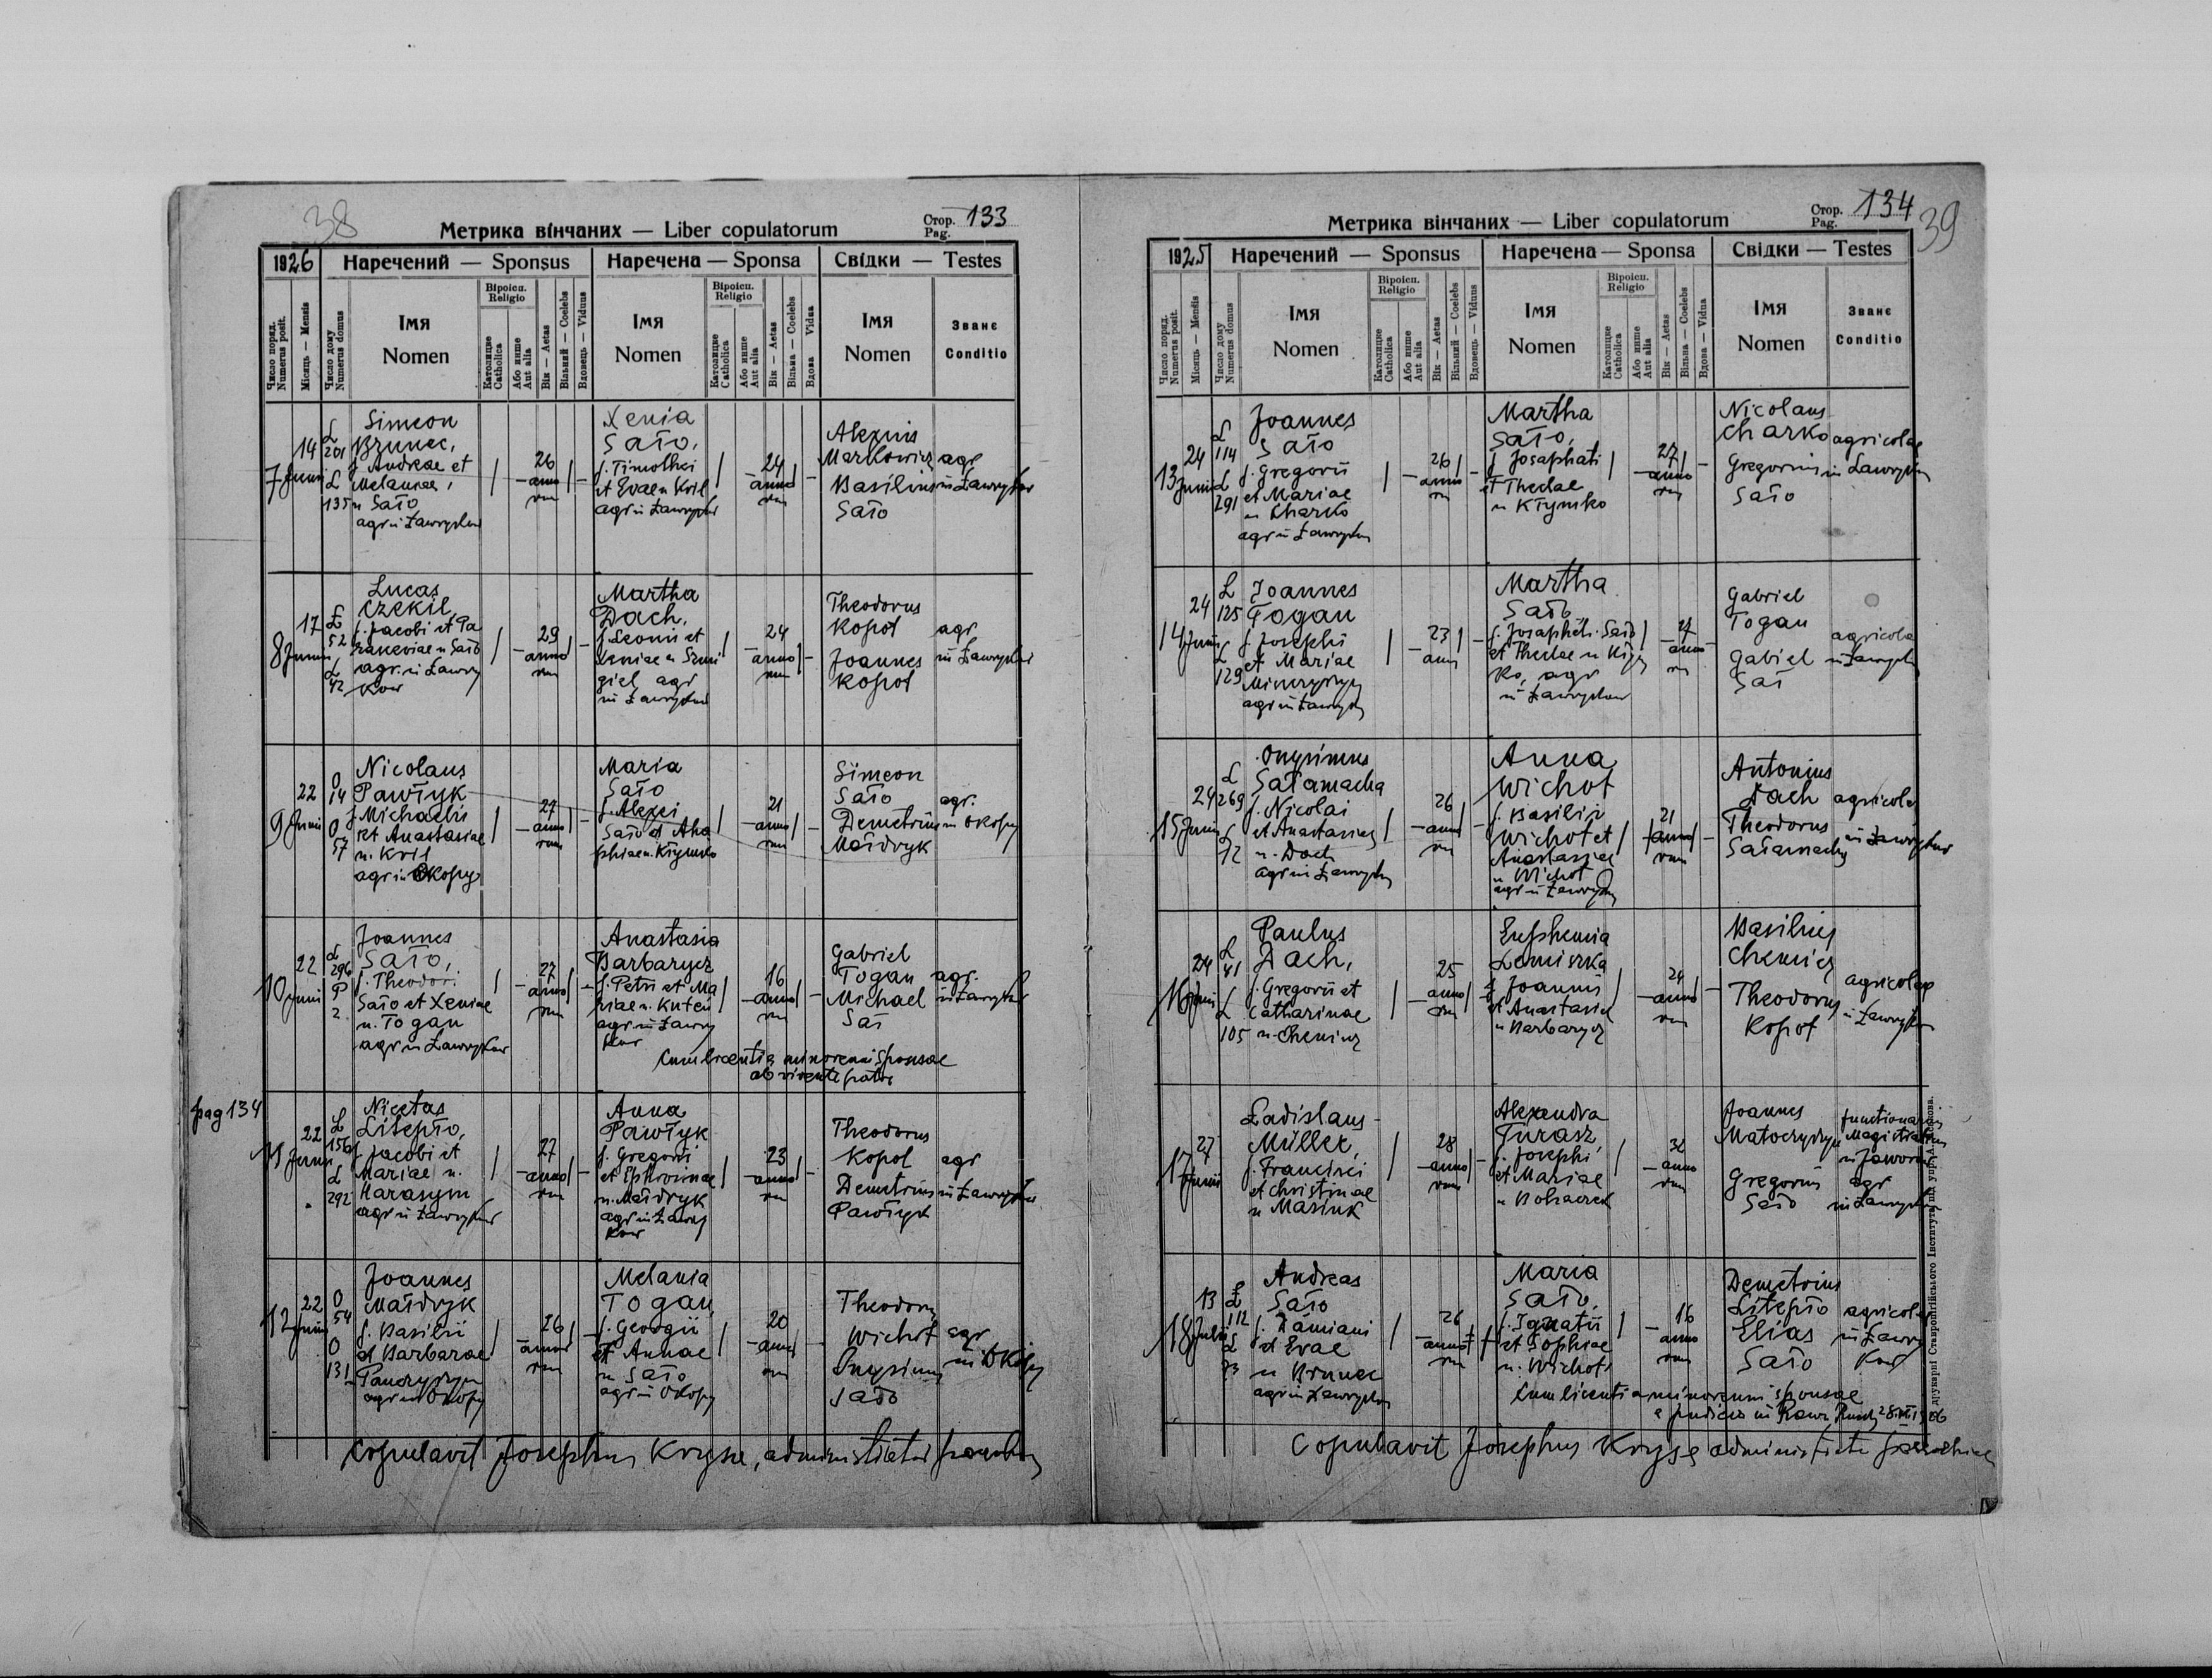 38
Метрика вінчаних — Liber copulatorum
Стор. Pag. 133
1926
Наречений — Sponsus
Наречена — Sponsa
Свідки — Testes
Число поряд. Numerus posit.
Місяць — Mensis
Число дому Numerus domus
Імя Nomen
Віроісп. Religio
Католицке Catholica
Або инше Aut alia
Вік — Aetas
Вільний — Coelebs
Вдовець — Viduus
Імя Nomen
Віроісп. Religio
Католицке Catholica
Або инше Aut alia
Вік — Aetas
Вільна — Coelebs
Вдова Vidua
Імя Nomen
Званє Conditio
7
14 Junii
Ł 201
Ł 135
Simeon
Brunec,
f. Andreae et
Melaniae,
n Sało
agr in Ławryków
26 annorum
Xenia
Sało,
f. Timothei
et Evae n Kril
agr in Ławryków
24 annorum
Alexius
Markowicz
Basilius
Sało
agr
in Ławryków
8
17 Junii
Ł 52
Ł 42
Lucas
Czekil,
f. Jacobi et Pa
raneviae n Sało
agr. in Ławry
kow
29 annorum
Martha
Dach,
f. Leonis et
Xeniae n
giel agr
in Ławryków
24 annorum
Theodorus
Kopot
Joannes
Kopot
agr
in Ławryków
9
22 Junii
O 14
O 57
Nicolaus
Pawłyk
f. Michaelis
et Anastasiae
n. Kril
agr in Okopy
27 annorum
Maria
Sało
f. Alexei
Sało et Aga
phiae n. Kłymko
21 annorum
Simeon
Sało
Demetrius
Mai̇̄dryk
agr.
in Okopy
10
22 Junii
Ł 296
P 2
Joannes
Sało,
f. Theodori
Sało et Xeniae
n. Togan
agr in Ławryków
27 annorum
Anastasia
Barbarycz
f. Petri et Ma
riae n. Kuten
agr in Ławry
kow
16 annorum
Gabriel
Togan
Michael
Sas
agr.
in Ławryków
Cum licentia minorenni sponsae
ab vivente patre
pag 134
11
22 Junii
Ł 156
Ł 292
Nicetas
Litepło,
f. Jacobi et
Mariae n.
Harasym
agr in Ławryków
27 annorum
Anna
Pawłyk
f. Gregorii
et Ephrosinae
n. Maidryk
agr in Ławry
kow
23 annorum
Theodorus
Kopot
Demetrius
Pawłyk
agr
in Ławryków
12
22 Junii
O 54
O 131
Joannes
Maidryk
f. Basilii
et Barbarae
n
agr in Okopy
26 annorum
Melania
Togan,
f. Georgii
et Annae
n Sało
agr in Okopy
20 annorum
Theodorus
Wichot
Onysimus
Sało
agr
in Okopy
Copulavit Josephus Kryse, administrator parochiae
39
Метрика вінчаних — Liber copulatorum
Стор. Pag. 134
1925
Наречений — Sponsus
Наречена — Sponsa
Свідки — Testes
Число поряд. Numerus posit.
Місяць — Mensis
Число дому Numerus domus
Імя Nomen
Віроісп. Religio
Католицке Catholica
Або инше Aut alia
Вік — Aetas
Вільний — Coelebs
Вдовець — Viduus
Імя Nomen
Віроісп. Religio
Католицке Catholica
Або инше Aut alia
Вік — Aetas
Вільна — Coelebs
Вдова — Vidua
Імя Nomen
Званє Conditio
13
24 Junii
Ł 114
Ł 291
Joannes
Sało
f. Gregorii
et Mariae
n Charko
agr in Ławryków
26 annorum
Martha
Sało,
f Josaphati
et Theclae
n Kłymko
27 annorum
Nicolaus
Charko
Gregorius
Sało
agricolae
in Ławryków
14
24 Junii
Ł 125
Ł 129
Joannes
Togan
f. Josephi
et Mariae
agr in Ławryków
23 ann
Martha
Sało
f. Josaphati Sało
et Theclae n Kłym
ko, agr
in Ławryków
annorum
Gabriel
Togan
Gabiel
Sas
agricolae
in Ławryków
15
24 Junii
Ł 269
Ł 12
Onysimus
Sałamacha
f. Nicolai
et Anastasiae
n. Dach
agr in Ławryków
26 annorum
Anna
Wichot
f. Basilii
Wichot et
Anastasiae
n Wichot
agr in Ławryków
21 annorum
Antonius
Dach
Theodorus
Sałamacha
agricolae
in Ławryków
16
24 Junii
Ł 41
Ł 105
Paulus
Dach,
f. Gregorii et
Catharinae
n. Chemicz
25 annorum
Euphemia
Lemiszka
f Joannis
et Anastasiae
n Barbarycz
24 annorum
Basilius
Chemicz
Theodorus
Kopot
agricolae
in Ławryków
17
27 Junii
Ładislaus
Müller,
f. Francisci
et Christinae
n Masiuk
28 annorum
Alexandra
Turasz,
f. Josephi
et Mariae
n
32 annorum
Joannes
Gregorius
Sało
functionarius
Magistratus
in Jaworów
agr
in Ławryków
18
13 Julii
Ł 112
Ł 73
Andreas
Sało
f. Damiani
et Evae
n Brunec
agr in Ławryków
26 annorum
Maria
Sało,
f. Ignatii
et Sophiae
n. Wichot
16 annorum
Demetrius
Litepło
Elias
Sało
agricolae
in Ławry
kow
Cum licentia minorenni sponsae
e judicio in Rawa Ruska
Copulavit Josephus Kryse administrator parochiae